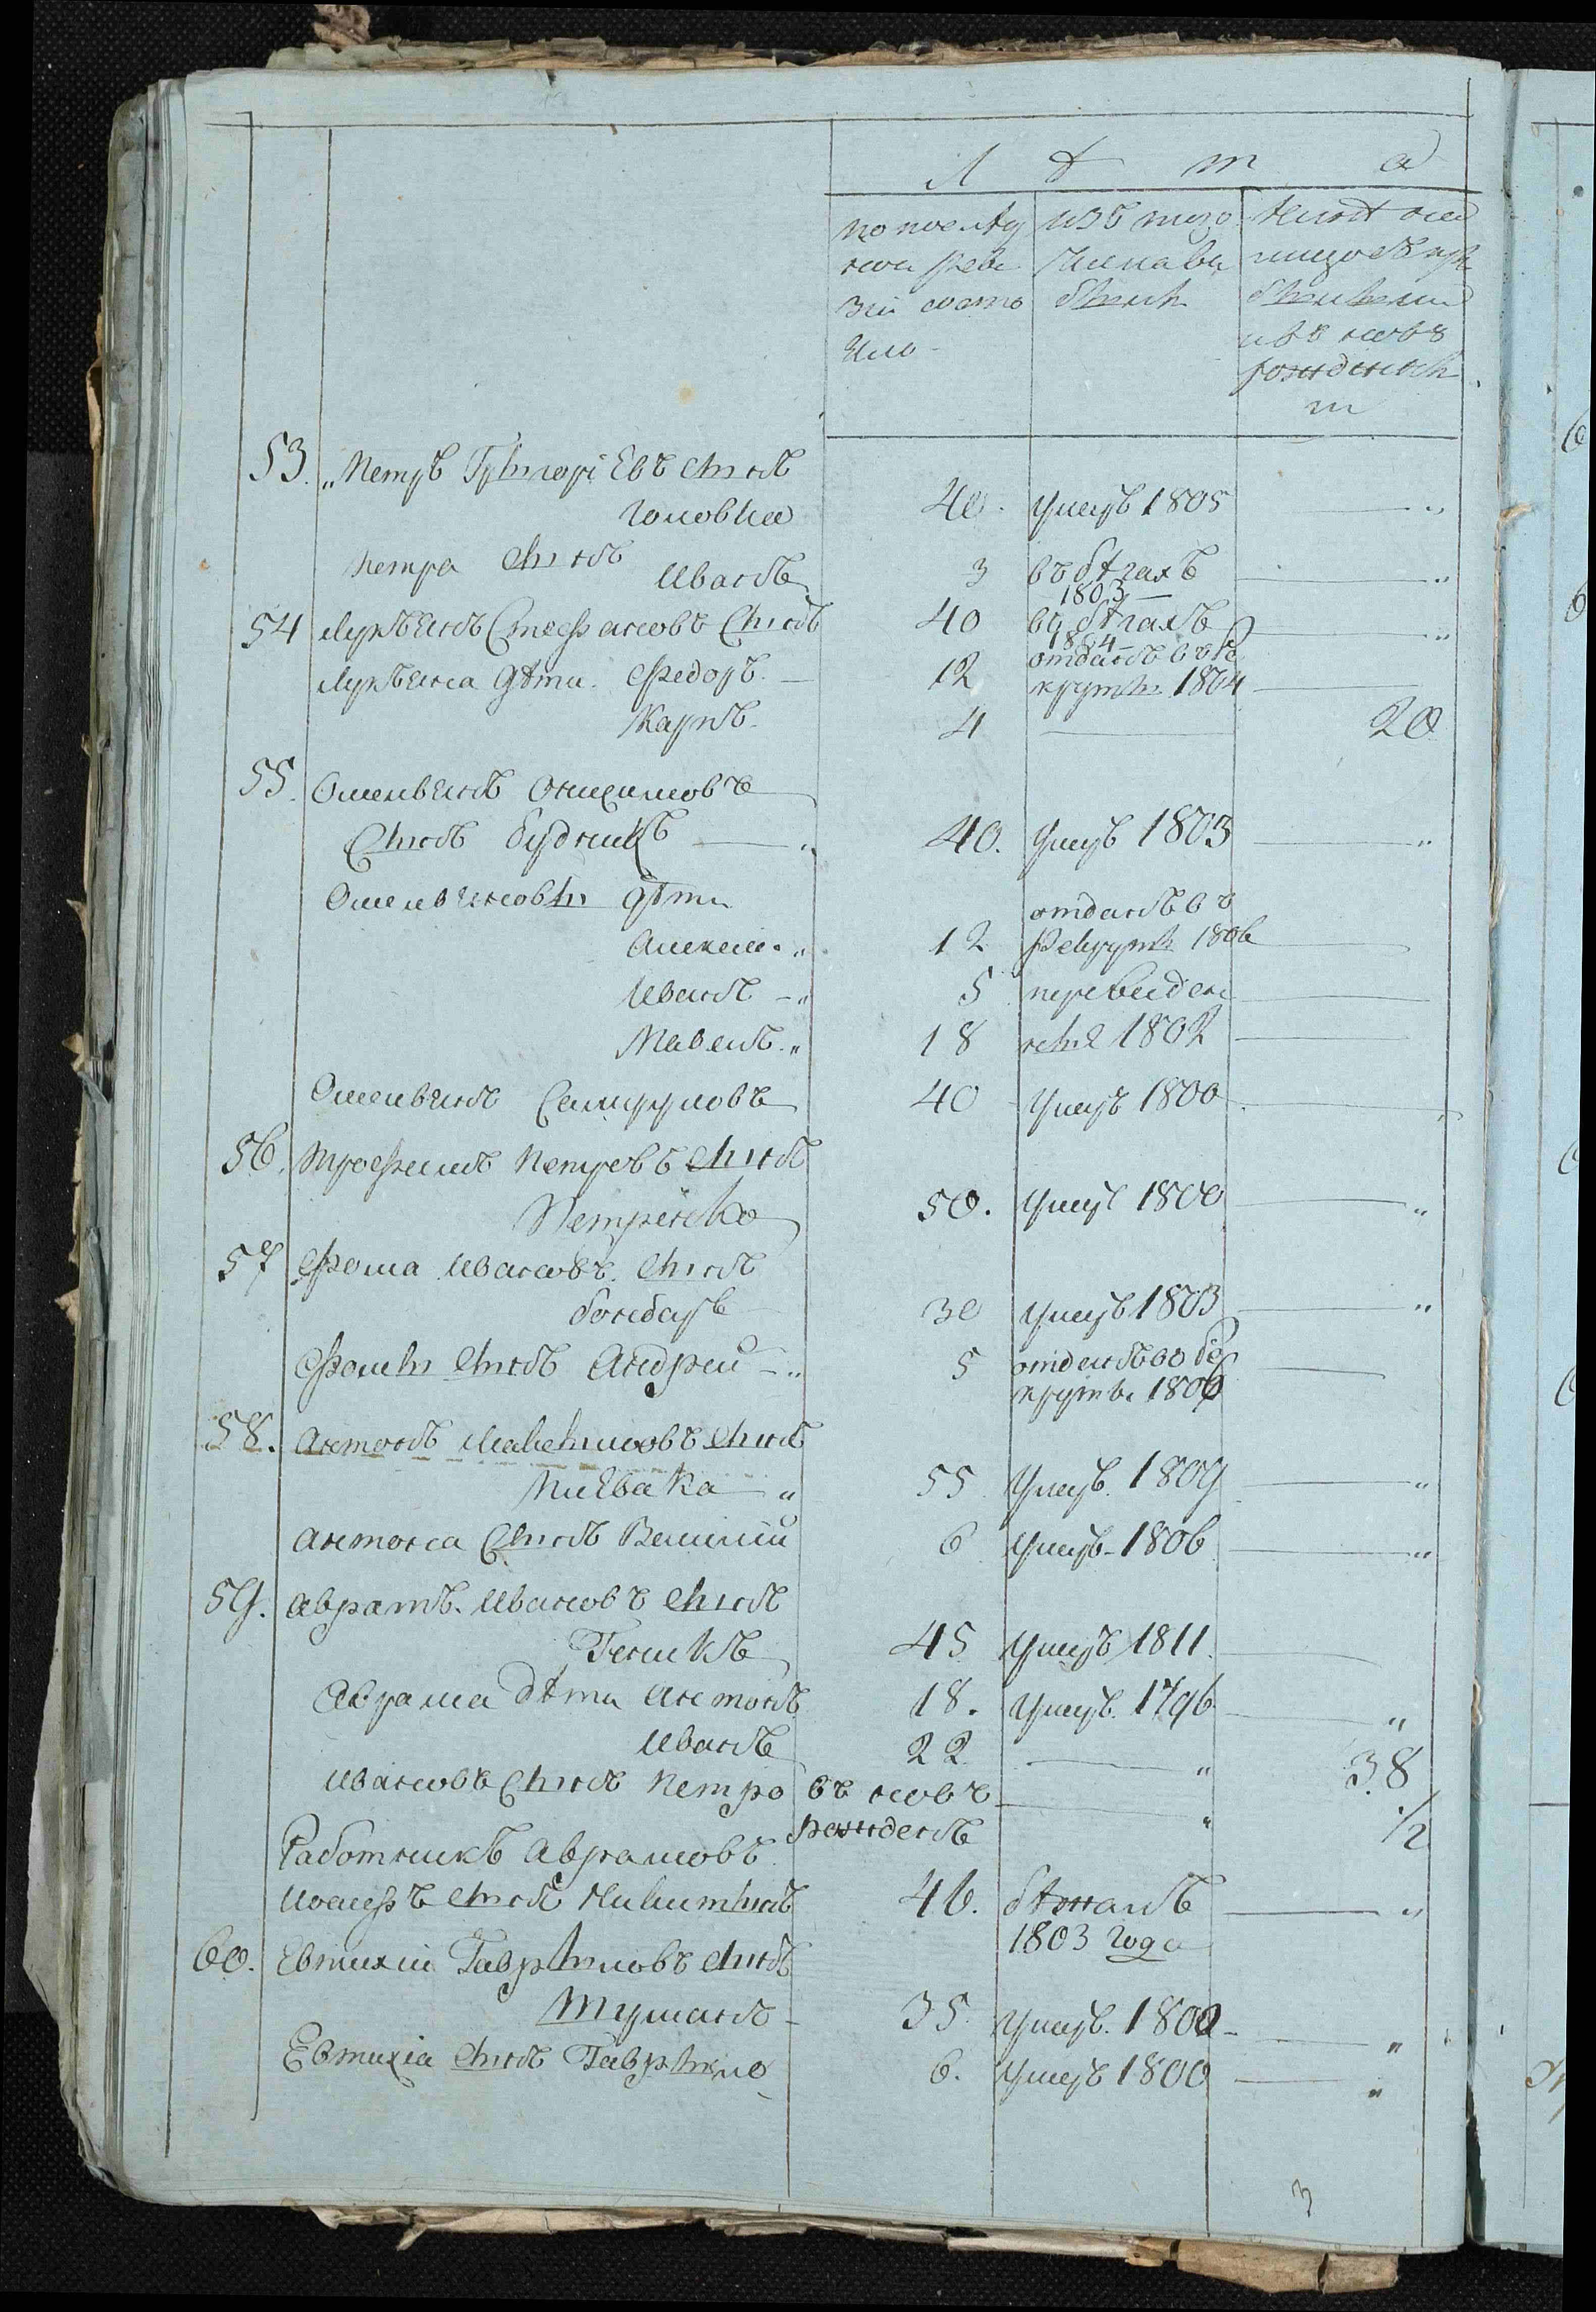 Лѣта
по послѣд ней реви зіи состо яло
изъ того числа вы было
нынѣ на лицо съ при былыми и въ новѣ рожденны м
53. Петръ Григоріевъ сынъ
Головка 40. умеръ 1805
Петра сынъ Иванъ 3 въ бѣгахъ 1803
54 Лукъянъ Стефановъ сынъ 40 въ бѣгахъ 1804
Лукъяна дѣти Федоръ 12 отданъ въ ре круты 1804
Карпъ 4 20
55. Омельянъ Онисимовъ
сынъ Будникъ 40. умеръ 1803
Омельяновы дѣти
Алексей 12 отданъ въ рекруты 1806
Иванъ 5 переведен
Павелъ 18 ны 1802
Омельянъ 40 умеръ 1800
56. Трофимъ Петровъ сынъ
Петренко 50. умеръ 1800
57 Фома Ивановъ сынъ
Бондарь 30 умеръ 1803
Фомы сынъ Андрей 5 отданъ во ре круты 1806
58. Антонъ сынъ
55 умеръ 1809
Антона сынъ Василій 6 умеръ 1806
59. Аврамъ Ивановъ сынъ
45 умеръ 1811.
Аврама дѣти Антонъ 18. умеръ 1796
Иванъ 22 38
Ивановъ сынъ Петро въ новѣ рожденъ 1/2
Работникъ Аврамовъ
Иосифъ сынъ Никитинъ 46. бѣжалъ 1803 года
60. Евтихій Гаврыловъ сынъ
Туманъ 35. умеръ 1800
Евтихіа сынъ Гаврыло 6. умеръ 1800
3